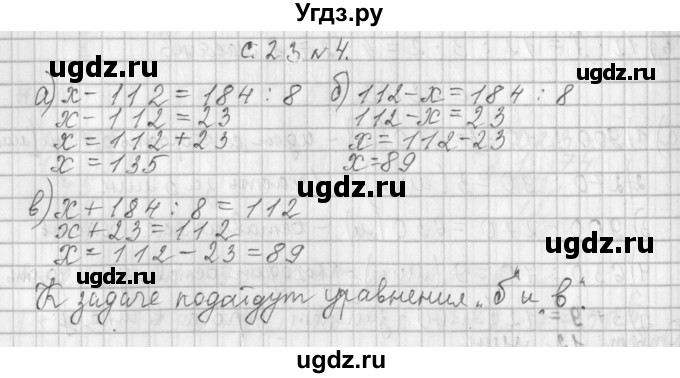 Угдз.ру
с. 23 №4.
а) х - 112 = 184 : 8 б) 112 - х = 184 : 8
х - 112 = 23 112 - х = 23
х = 112 + 23 х = 112 - 23
х = 135 х = 89
ugdz.ru ugdz.ru
в) х + 184 : 8 = 112
х + 23 = 112
х = 112 - 23 = 89
ugdz.ru
К задаче подайдут уравнения „б" и „в".
ugdz.ru
ugdz.ru